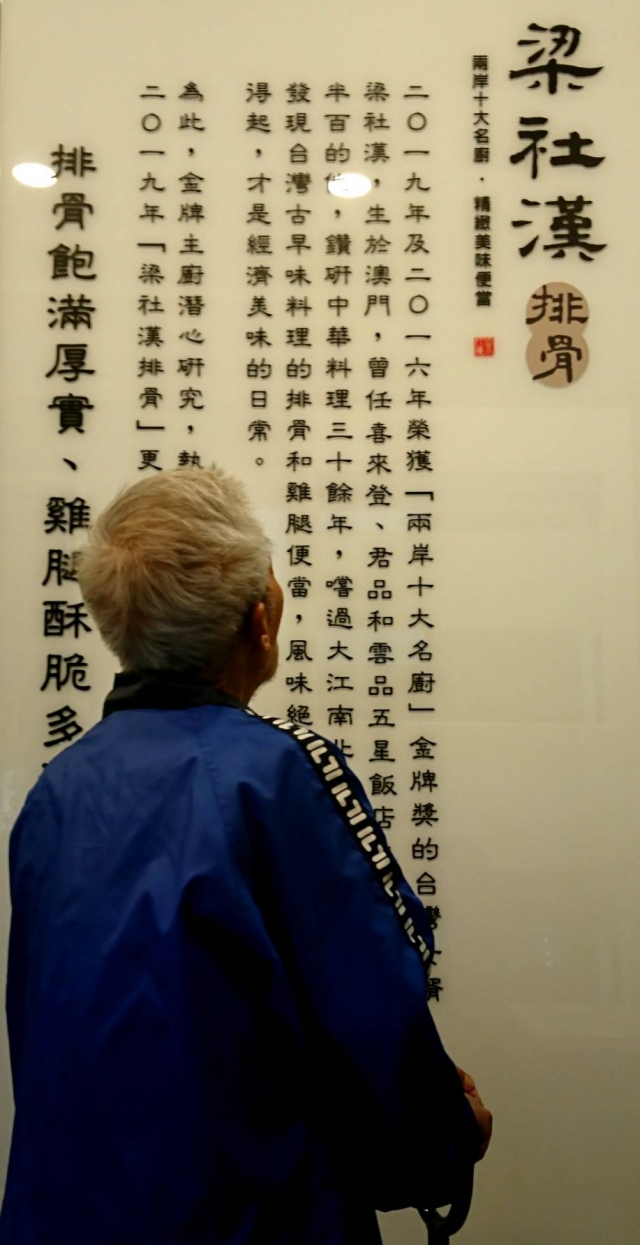 梁社漢
排骨
兩岸十大名廚．精緻美味便當
二〇一九年及二〇一六年榮獲「兩岸十大名廚」金牌獎的台灣女婿
梁社漢，生於澳門，曾任喜來登、君品和雲品五星飯店
半百的他，鑽研中華料理三十餘年，嚐過大江南北
發現台灣古早味料理的排骨和雞腿便當，風味絕
得起，才是經濟美味的日常。
為此，金牌主廚潛心研究，執
二〇一九年「梁社漢排骨」更
排骨飽滿厚實、雞腿酥脆多